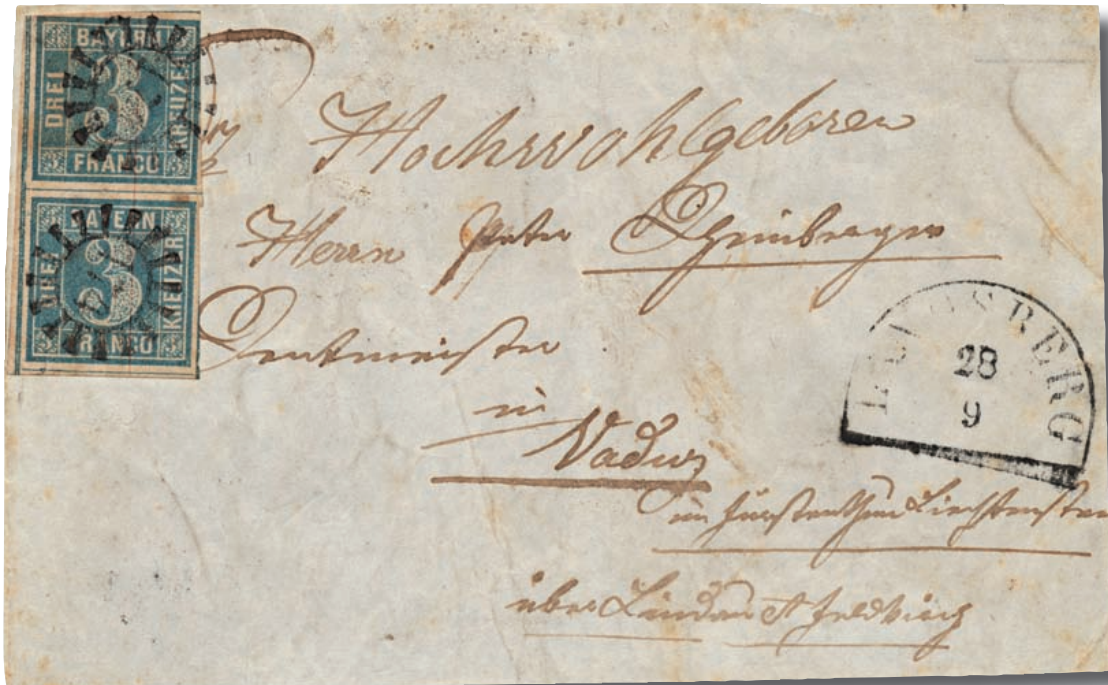 BAYERN
DREI
3
KREUZER
FRANCO
BAYERN
DREI
3
KREUZER
FRANCO
Hochwohlgeboren
Herrn Peter
Rentmeister
in
Vaduz
im Fürstenthum Liechtenstein
über Lindau & Feldkirch
28
9